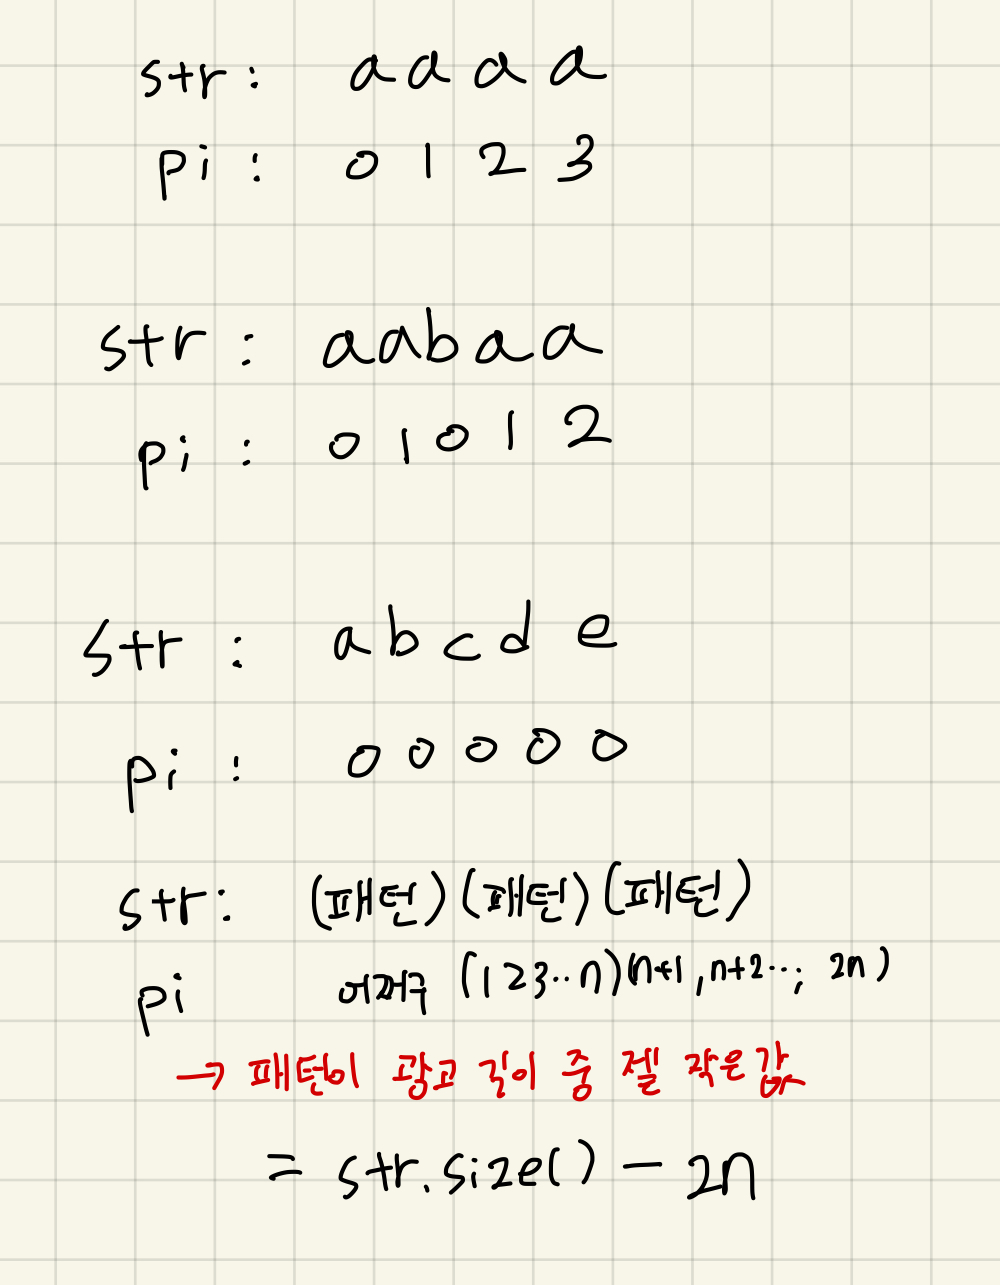 str : a a a a
pi : 0 1 2 3
str : a a b a a
pi : 0 1 0 1 2
str : a b c d e
pi : 0 0 0 0 0
str : (패턴) (패턴) (패턴)
pi 어쩌구 (1 2 3 .. n) (n+1, n+2 ..; 2n)
→ 패턴이 광고 길이 중 젤 작은 값
= str.size() - 2n